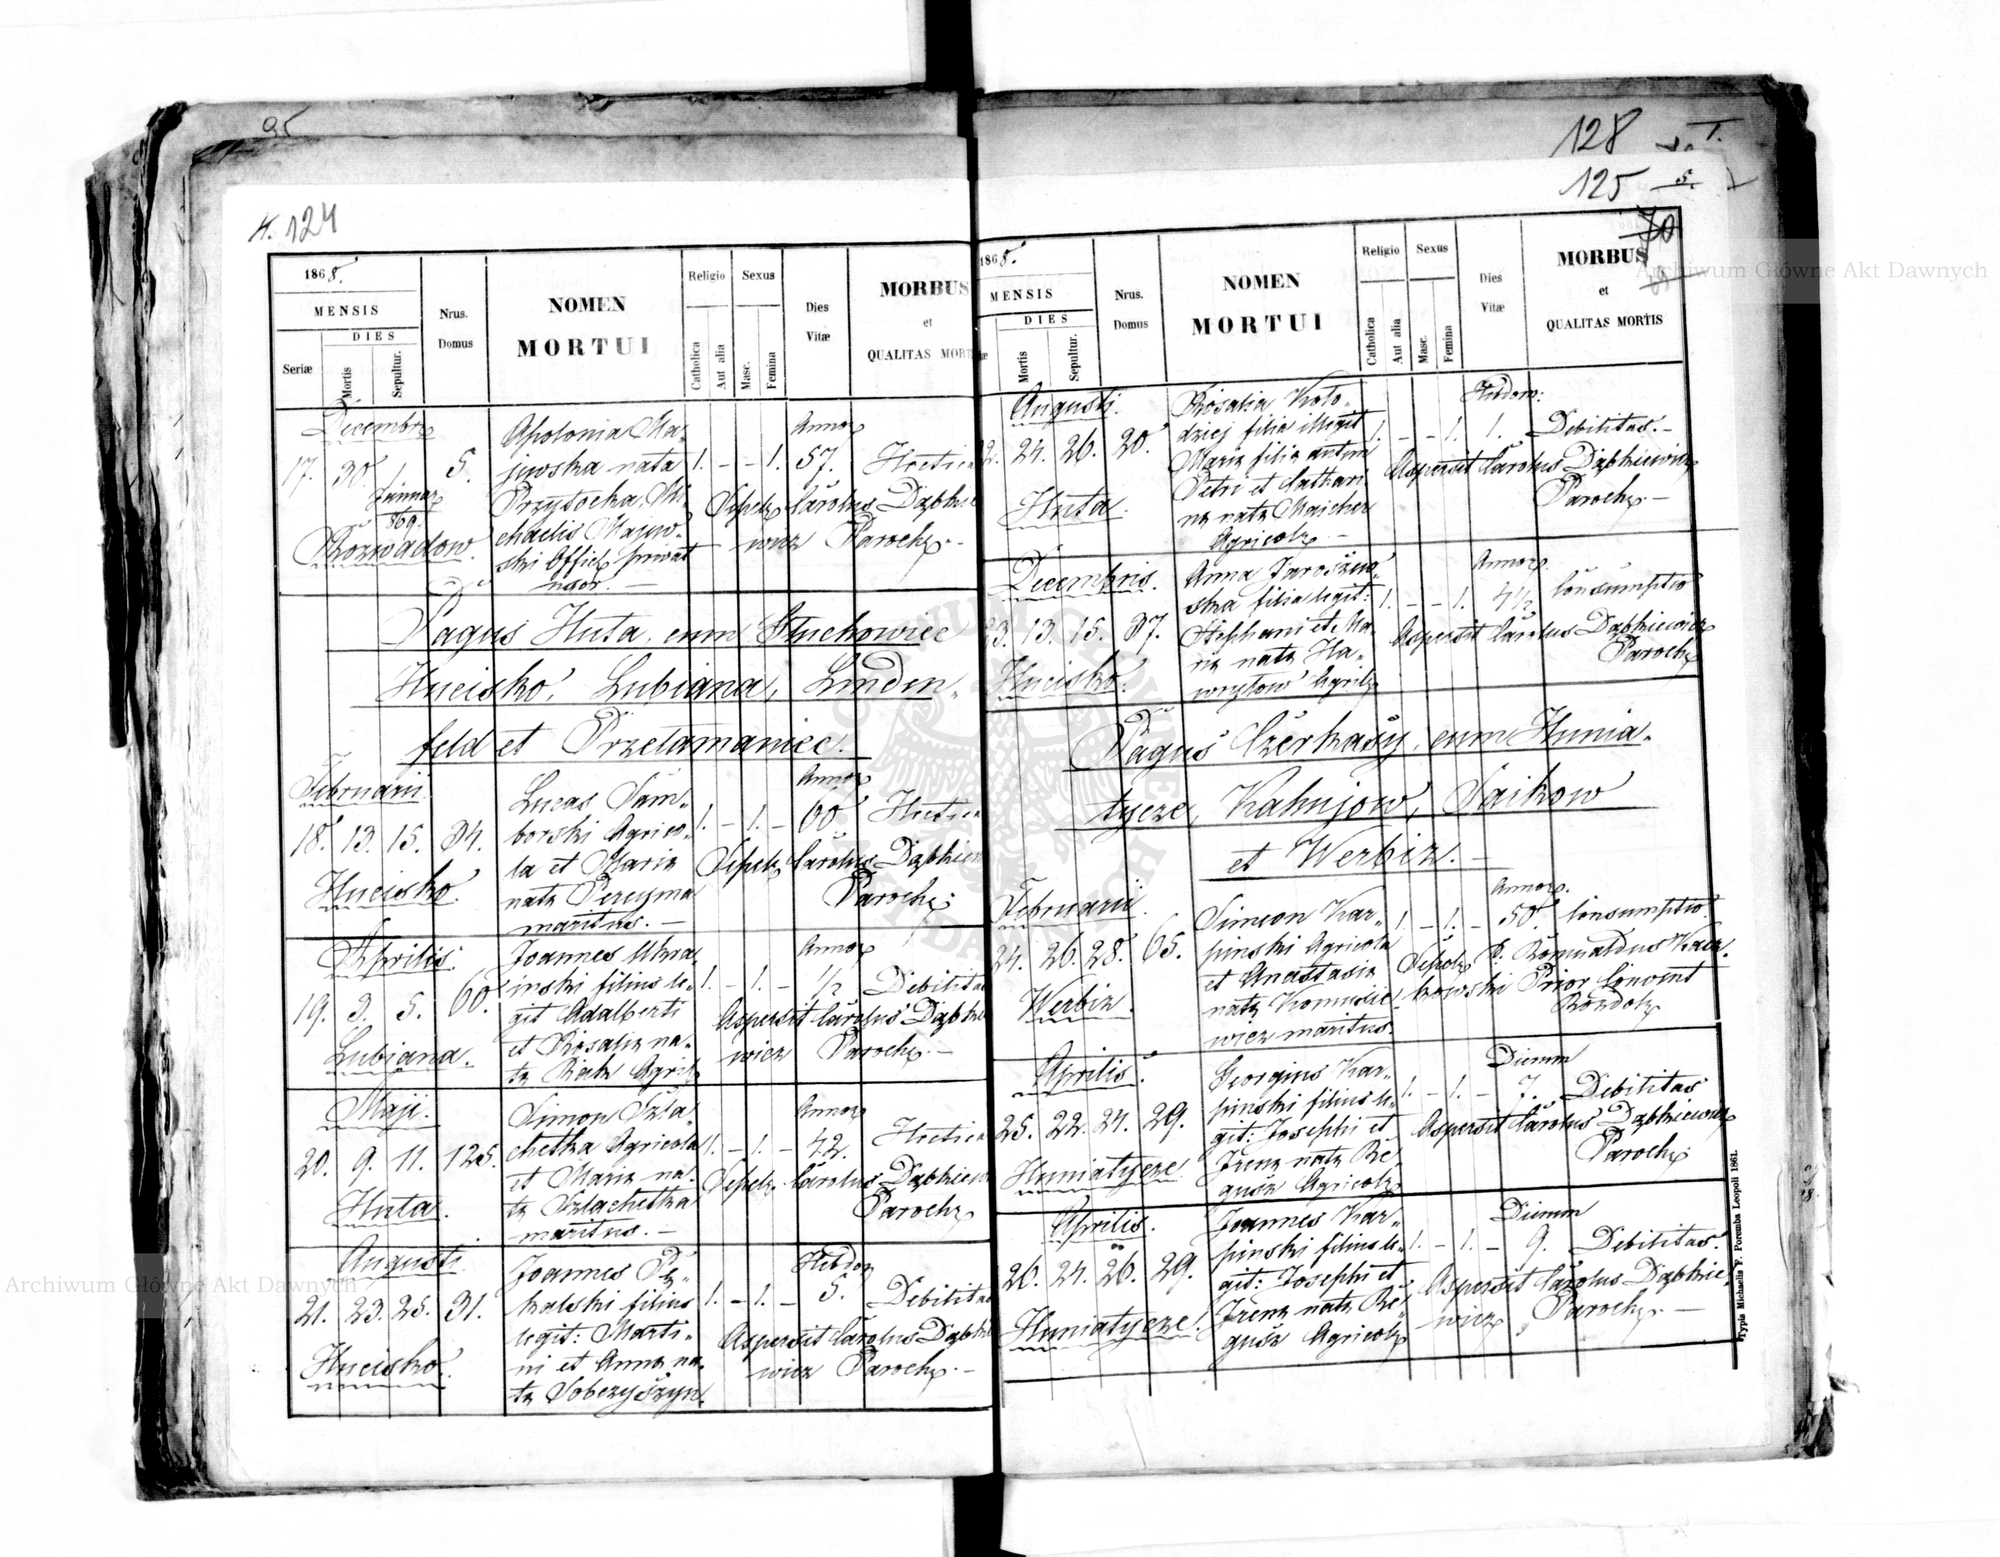 95
4. 124
1868.
MENSIS
DIES
Seriæ
Mortis
Sepultur.
Nrus.
Domus
NOMEN
MORTUI
Religio
Catholica
Aut alia
Sexus
Masc.
Femina
Dies
Vitæ
MORBUS
et
QUALITAS MORT
Decembr
17. 30. 1. 5.
Januar
869.
Rozwadow.
Apolonia Ma-
jewska nata
Przysocka, Mi
chaelis Majew-
ski Offic. privat
uxor. —
1. - - 1.
Annor
57. Hectica
Sepel. Carolus Dąbkie
wicz Paroch. -
Pagus Huta, cum Stuchowiec
Hucisko, Lubiana, Linden-
feld et Przelamaniec.
Februarii
18. 13. 15. 34.
Hucisko.
Lucas Sam-
borski Agrico-
la et Maria
nata Percyma
maritus. —
1. - 1. -
Annor
60 Hectica
Sepel. Carolus Dąbkiew
Paroch.
Aprilis
19. 3. 5. 60.
Lubiana.
Joannes Ukra-
inski filius le-
git Adalberti
et Rosalia na-
ta Bak Agril.
1. - 1. -
Annor
1/2 Debilitas
Aspersit Carolus Dąbkie
wicz Paroch. —
Maji.
20. 9. 11. 125.
Huta.
Simon Szla-
chetka Agricola
et Maria na-
ta Szlachetka
maritus. —
1. - 1. -
Annor
42. Hectica
Sepel. Carolus Dąbkiew
Paroch.
Augusti
21. 23. 25. 31.
Hucisko.
Joannes Pę-
kalski filius
legit: Marti-
ni et Anna na-
ta Sobczyszyn.
1. - 1. -
Hebdom
5. Debilitas
Aspersit Carolus Dąbkie
wicz Paroch. —
128
125
70
1868.
MENSIS
DIES
Mortis
Sepultur.
Nrus.
Domus
NOMEN
MORTUI
Religio
Catholica
Aut alia
Sexus
Masc.
Femina
Dies
Vitæ
MORBUS
et
QUALITAS MORTIS
Augusti.
22. 24. 26. 20.
Huta.
Rosalia Koło-
dziej filia illegit
Maria filia autem
Petri et Cathari
na nata Maicher
Agricola —
1. - - 1.
Hebdom:
1. Debilitas. -
Aspersit Carolus Dąbkiewicz
Paroch. —
Decembris.
23. 13. 15. 37.
Hucisko.
Anna Jaroszew
ska filia legit:
Stephani et Ma-
ria nata Ha-
wrylow Agril.
1. - - 1.
Annor
4 1/2 Consumptio
Aspersit Carolus Dąbkiewicz
Paroch
Pagus Czerkasy, cum Hunia-
tycze, Kahujow, Saikow
et Werbiz. —
Februarii
24. 26. 28. 65.
Werbiz.
Simeon Kar-
pinski Agricola
et Anastasia
nata Komusie
wicz maritus.
1. - 1. -
Annor.
50. Consumptio
Sepel. P. Romualdus Kacz
kowski Prior Convent
Rozdol.
Aprilis.
25. 22. 24. 29.
Huniatycze.
Georgius Kar-
pinski filius le-
git: Josephi et
Irena nata Re-
gusz Agricola
1. - 1. -
Dierum
7. Debilitas
Aspersit Carolus Dąbkiewicz
Paroch.
Aprilis.
26. 24. 26. 29.
Huniatycze.
Joannes Kar-
pinski filius le-
git: Josephi et
Irena nata Re-
gusz Agricola
1. - 1. -
Dierum
9. Debilitas.
Aspersit Carolus Dąbkie
wicz Paroch. —
Typis Michaelis F. Poremba Leopoli 1861.
Archiwum Główne Akt Dawnych
Archiwum Główne Akt Dawnych